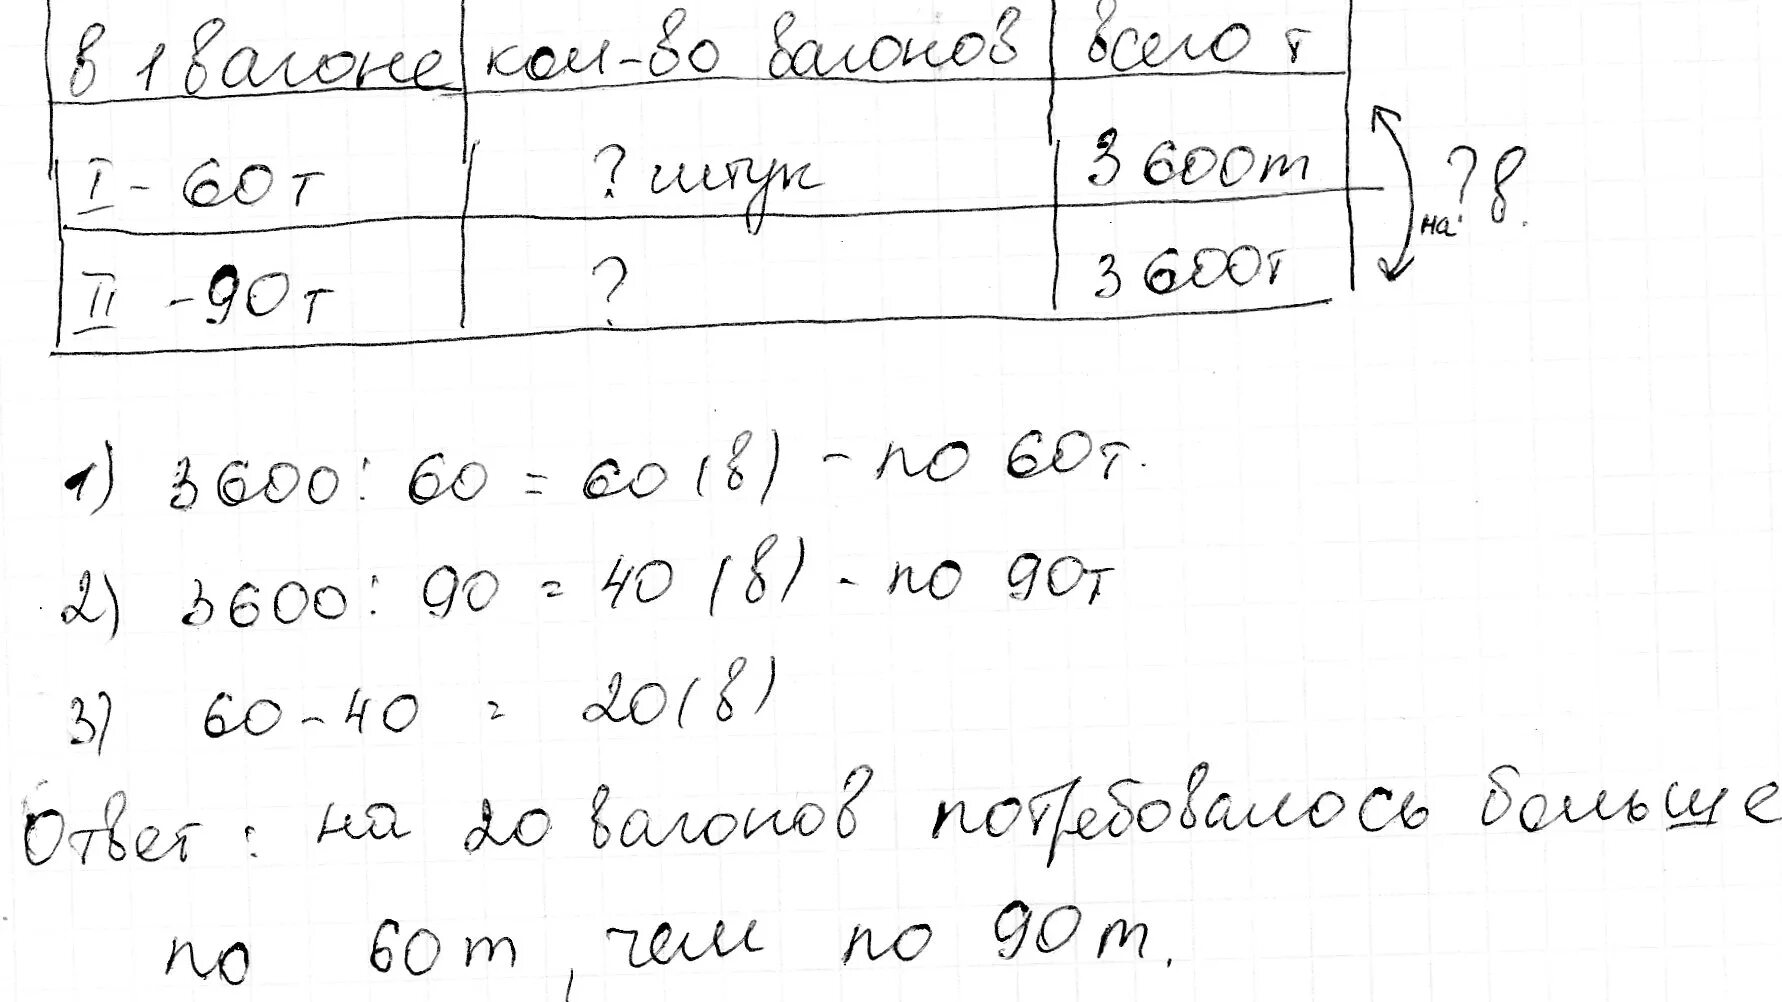 в 1 вагоне кол-во вагонов всего т
I - 60т ? штук 3 600т
на ? в.
II - 90т ? 3 600т
1) 3600 : 60 = 60 (в) - по 60т.
2) 3600 : 90 = 40 (в) - по 90т
3) 60 - 40 = 20 (в)
Ответ : на 20 вагонов потребовалось больше
по 60т, чем по 90т.